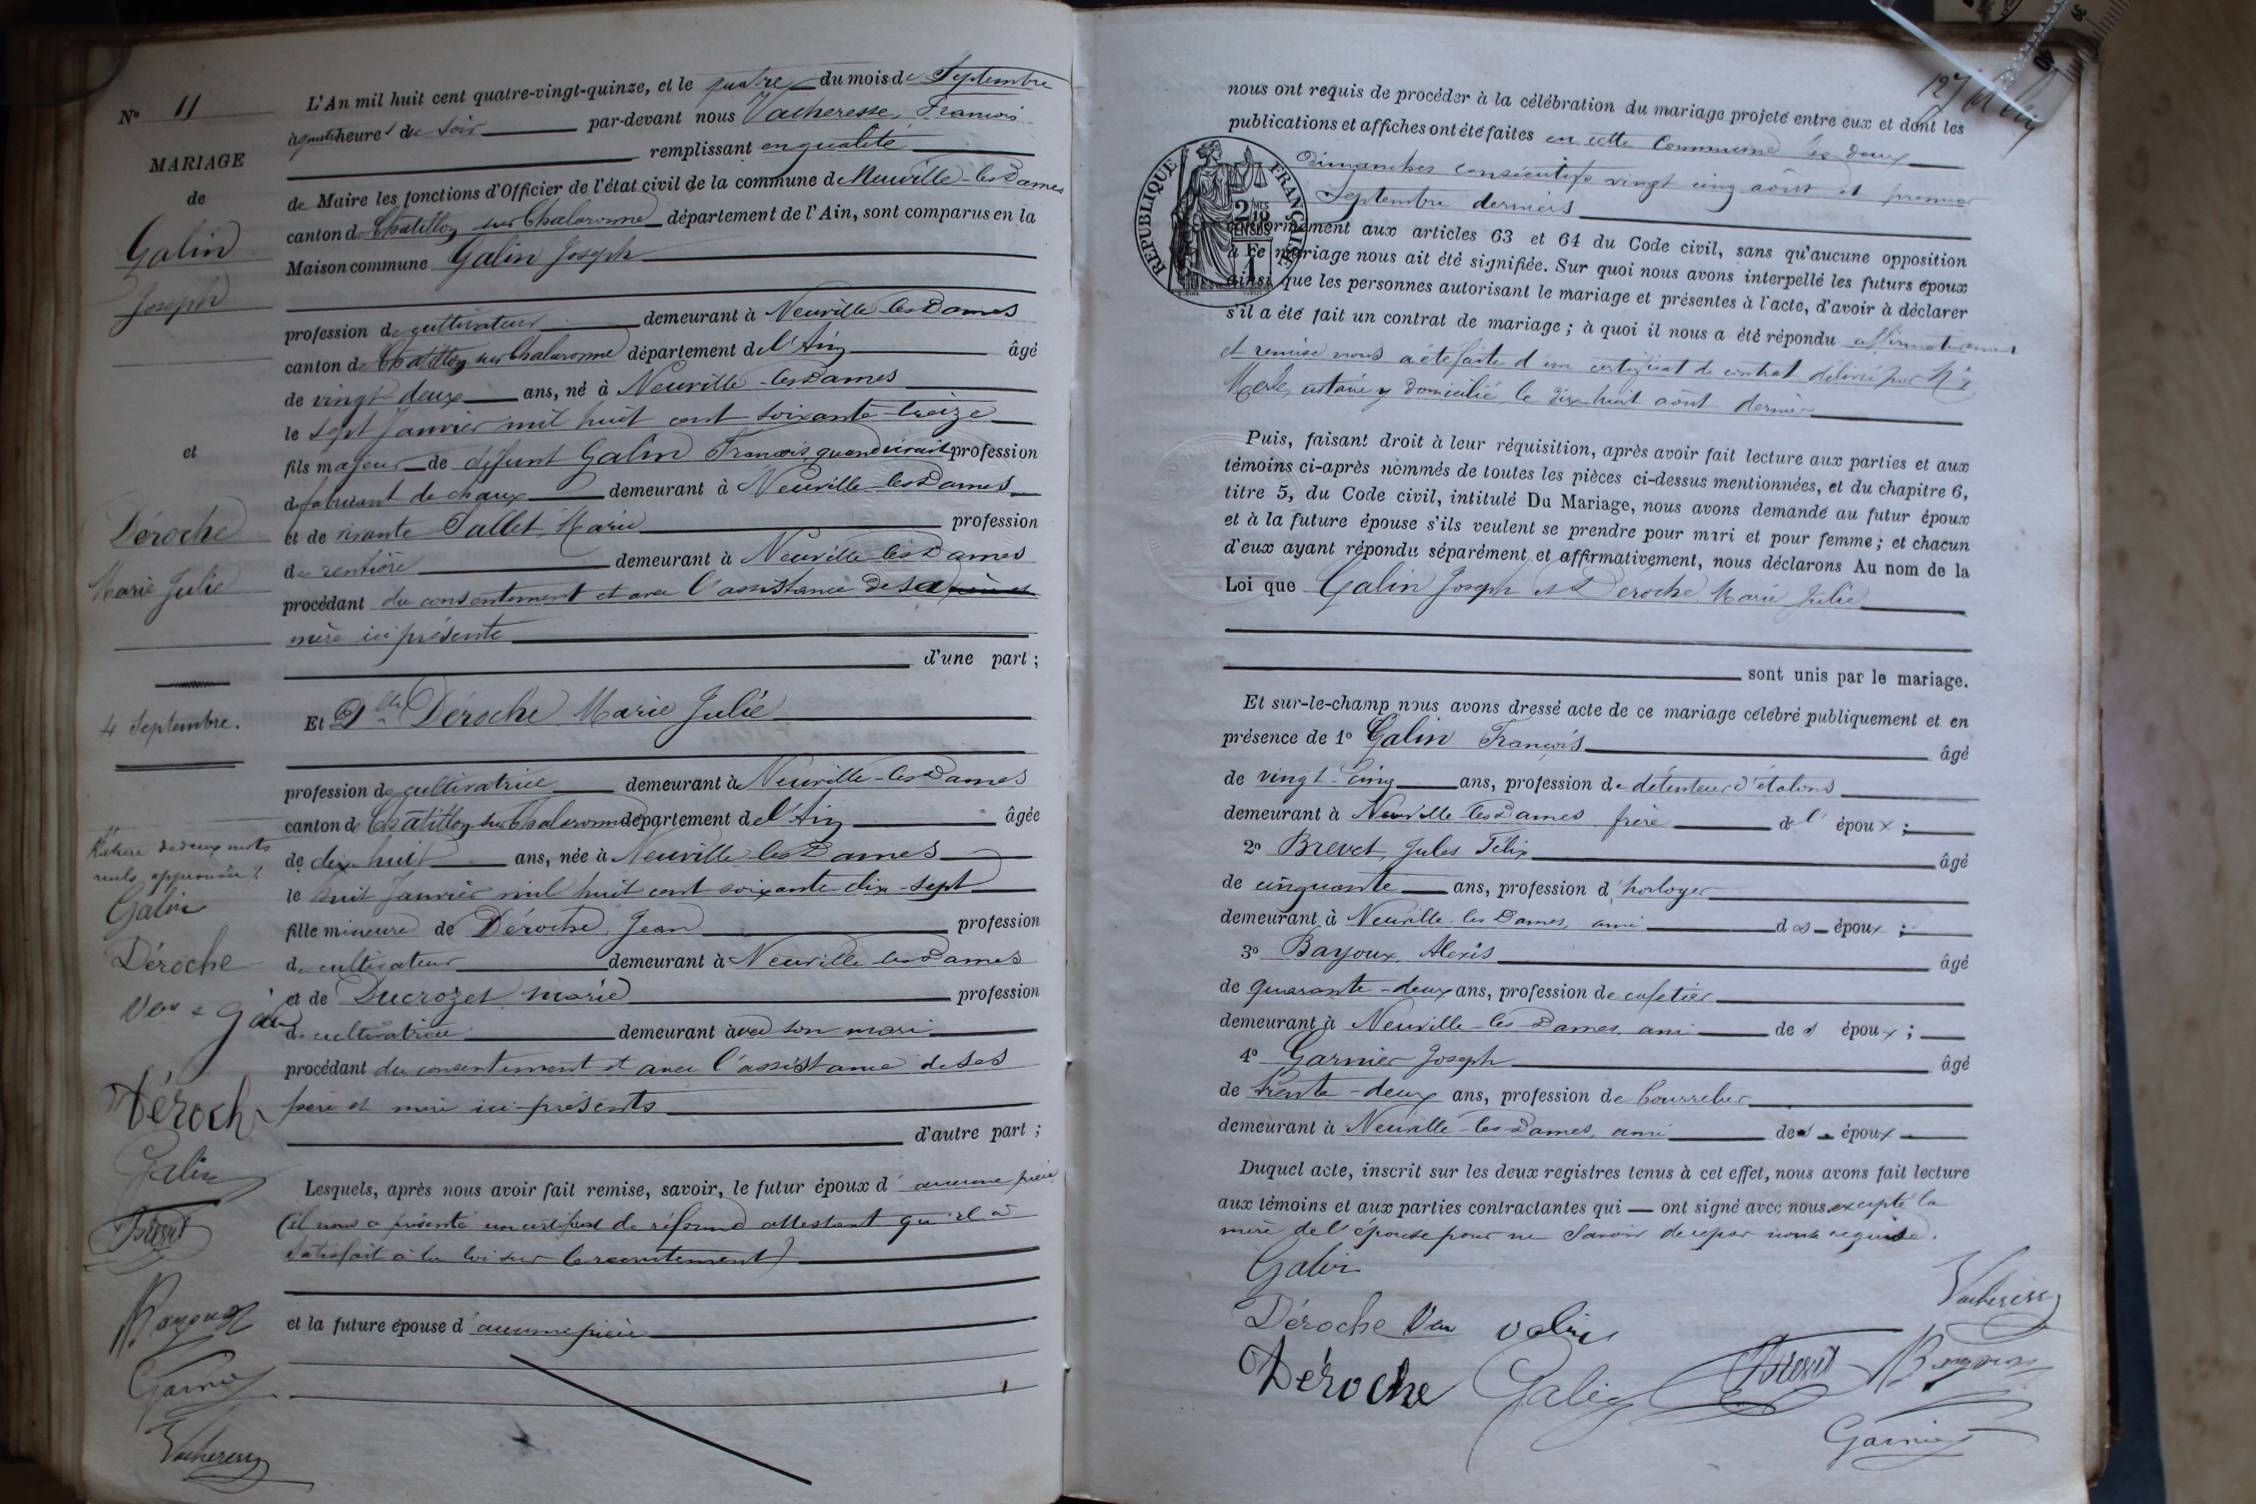 Nº 11
MARIAGE
de
Galin
Joseph
et
Déroche
Marie Julie
4 Septembre.
Rature de deux mots
nuls, approuvée
Galin
Déroche
Vve Galin
Déroche
Galin
Brevet
Bayoux
Garnier
Vacheresse
L'An mil huit cent quatre-vingt-quinze, et le quatre du mois de Septembre
à quatre heures du soir par-devant nous Vacheresse, François
remplissant en qualité
de Maire les fonctions d'Officier de l'état civil de la commune de Neuville-les-Dames
canton de Chatillon sur Chalaronne département de l'Ain, sont comparus en la
Maison commune Galin Joseph
profession de cultivateur demeurant à Neuville les Dames
canton de Chatillon sur Chalaronne département de l'Ain âgé
de vingt deux ans, né à Neuville-les-Dames
le sept Janvier mil huit cent soixante-treize
fils majeur de défunt Galin François, quand vivait profession
de fabricant de chaux demeurant à Neuville-les-Dames
et de vivante Pallet, Marie profession
de rentière demeurant à Neuville les Dames
procédant du consentement et avec l'assistance de sa père et
mère ici présente
d'une part;
Et Dlle Déroche Marie Julie
profession de cultivatrice demeurant à Neuville-les-Dames
canton de Chatillon sur Chalaronne département de l'Ain âgée
de dix huit ans, née à Neuville-les-Dames
le huit Janvier mil huit cent soixante dix-sept
fille mineure de Déroche, Jean profession
de cultivateur demeurant à Neuville les Dames
et de Ducrozet Marie profession
de cultivatrice demeurant avec son mari
procédant du consentement et avec l'assistance de ses
père et mère ici présents
d'autre part;
Lesquels, après nous avoir fait remise, savoir, le futur époux d'aucune pièce
(il nous a présenté un certificat de réforme attestant qu'il a
satisfait à la loi sur le recrutement)
et la future épouse d'aucune pièce
127
nous ont requis de procéder à la célébration du mariage projeté entre eux et dont les
publications et affiches ont été faites en cette Commune les deux
dimanches consécutifs vingt cinq août et premier
Septembre derniers
RÉPUBLIQUE FRANÇAISE
conformément aux articles 63 et 64 du Code civil, sans qu'aucune opposition
à ce mariage nous ait été signifiée. Sur quoi nous avons interpellé les futurs époux
ainsi que les personnes autorisant le mariage et présentes à l'acte, d'avoir à déclarer
s'il a été fait un contrat de mariage; à quoi il nous a été répondu affirmativement
et remise nous a été faite d'un certificat de contrat délivré par Me
Merle, notaire y domicilié, le dix huit août dernier
Puis, faisant droit à leur réquisition, après avoir fait lecture aux parties et aux
témoins ci-après nommés de toutes les pièces ci-dessus mentionnées, et du chapitre 6,
titre 5, du Code civil, intitulé Du Mariage, nous avons demandé au futur époux
et à la future épouse s'ils veulent se prendre pour mari et pour femme; et chacun
d'eux ayant répondu séparément et affirmativement, nous déclarons Au nom de la
Loi que Galin Joseph et Déroche Marie Julie
sont unis par le mariage.
Et sur-le-champ nous avons dressé acte de ce mariage célébré publiquement et en
présence de 1º Galin François âgé
de vingt-cinq ans, profession de détenteur d'étalons
demeurant à Neuville-les-Dames frère de l'époux;
2º Brevet, Jules Félix âgé
de cinquante ans, profession d'horloger
demeurant à Neuville les Dames, ami des époux;
3º Bayoux, Alexis âgé
de quarante-deux ans, profession de cafetier
demeurant à Neuville-les-Dames, ami des époux;
4º Garnier Joseph âgé
de trente-deux ans, profession de bourrelier
demeurant à Neuville-les-Dames, ami des époux
Duquel acte, inscrit sur les deux registres tenus à cet effet, nous avons fait lecture
aux témoins et aux parties contractantes qui ont signé avec nous excepté la
mère de l'épouse pour ne savoir de ce par nous requise.
Galin
Vacheresse
Déroche Vve Galin
Déroche Galin Brevet Bayoux
Garnier